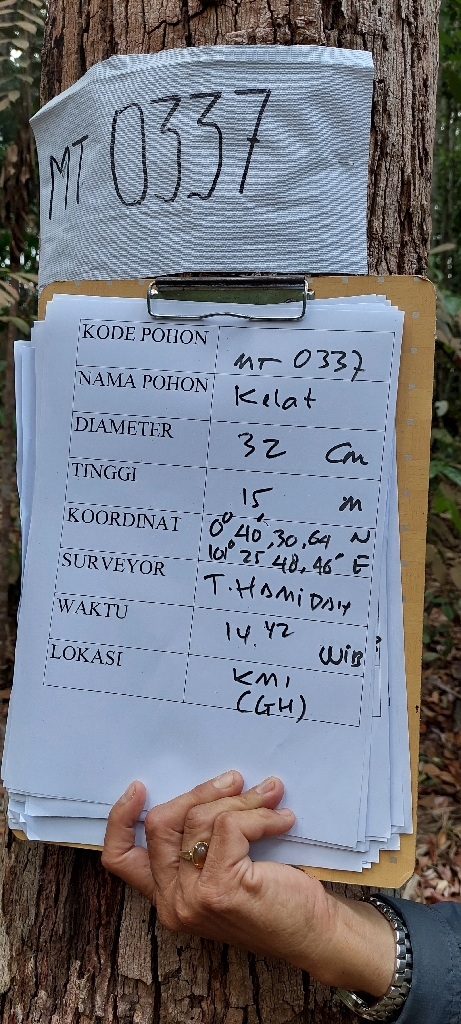 MT 0337
KODE POHON MT 0337
NAMA POHON Kelat
DIAMETER 32 Cm
TINGGI 15 m
KOORDINAT 0° 40' 30,64 N
101° 25 48,46" E
SURVEYOR T. HAMIDAH
WAKTU 14.42 WIB
LOKASI KMI
(GH)